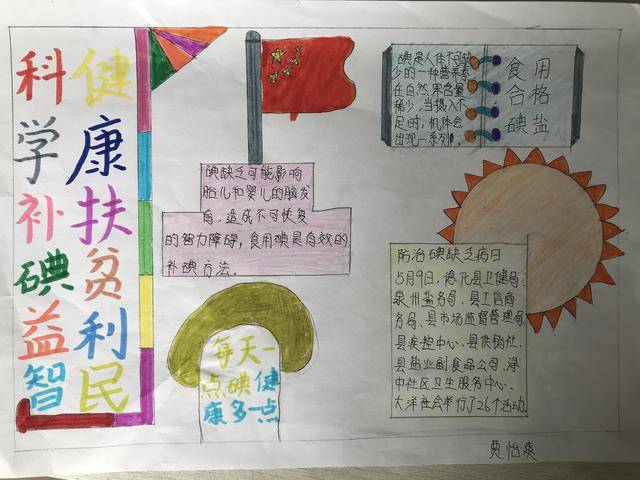 健康扶贫利民
科学补碘益智
碘缺乏可能影响
胎儿和婴儿的脑发
育，造成不可恢复
的智力障碍，食用碘是有效的
补碘方法.
碘是人体不可缺
少的一种营养素
在自然界含量
稀少，当摄入不
足时，机体会
出现一系列
食用
合格
碘盐
防治碘缺乏病日
5月9日，德化县卫健局、
泉州盐务局、县工信商
务局、县市场监督管理局
县疾控中心、县供销社、
县盐业副食品公司、浔
中社区卫生服务中心、
大洋社会举行了26个活动.
每天一
点碘健
康多一点
贾怡